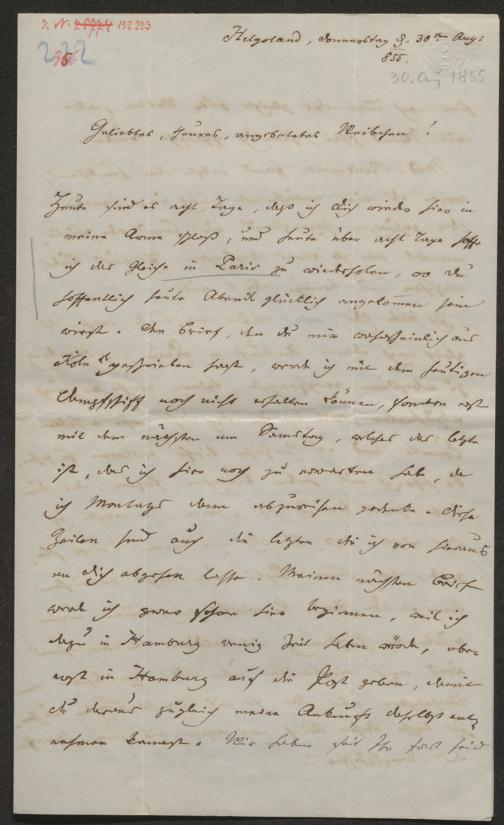 J. N. 25774 192223
232
56
Helgoland, Donnerstag d. 30ten Aug:
855.
30. Aug 1855
Geliebtes, theures, angebetetes Weibchen!
Heute sind es acht Tage, daß ich dich wieder hier in
meine Arme schloß, und heute über acht Tage hoffe
ich das Gleiche in Paris zu wiederholen, wo du
hoffentlich heute Abends glücklich angekommen sein
wirst. Den Brief, den du mir wahrscheinlich aus
Köln geschrieben hast, werde ich mit dem heutigen
Dampfschiff noch nicht erhalten können, sondern erst
mit dem nächsten am Samstag, welches das letzte
ist, das ich hier noch zu erwarten habe, da
ich Montags dann abzureisen gedenke. Diese
Zeilen sind auch die letzten, die ich von hieraus
an dich abgehen lasse. Meinen nächsten Brief
werde ich zwar schon hier beginnen, weil ich
dazu in Hamburg wenig Zeit haben würde, aber
erst in Hamburg auf die Post geben, damit
du daraus zugleich meine Ankunft daselbst ent-
nehmen kannst. Wir haben seit Ihr fort seid